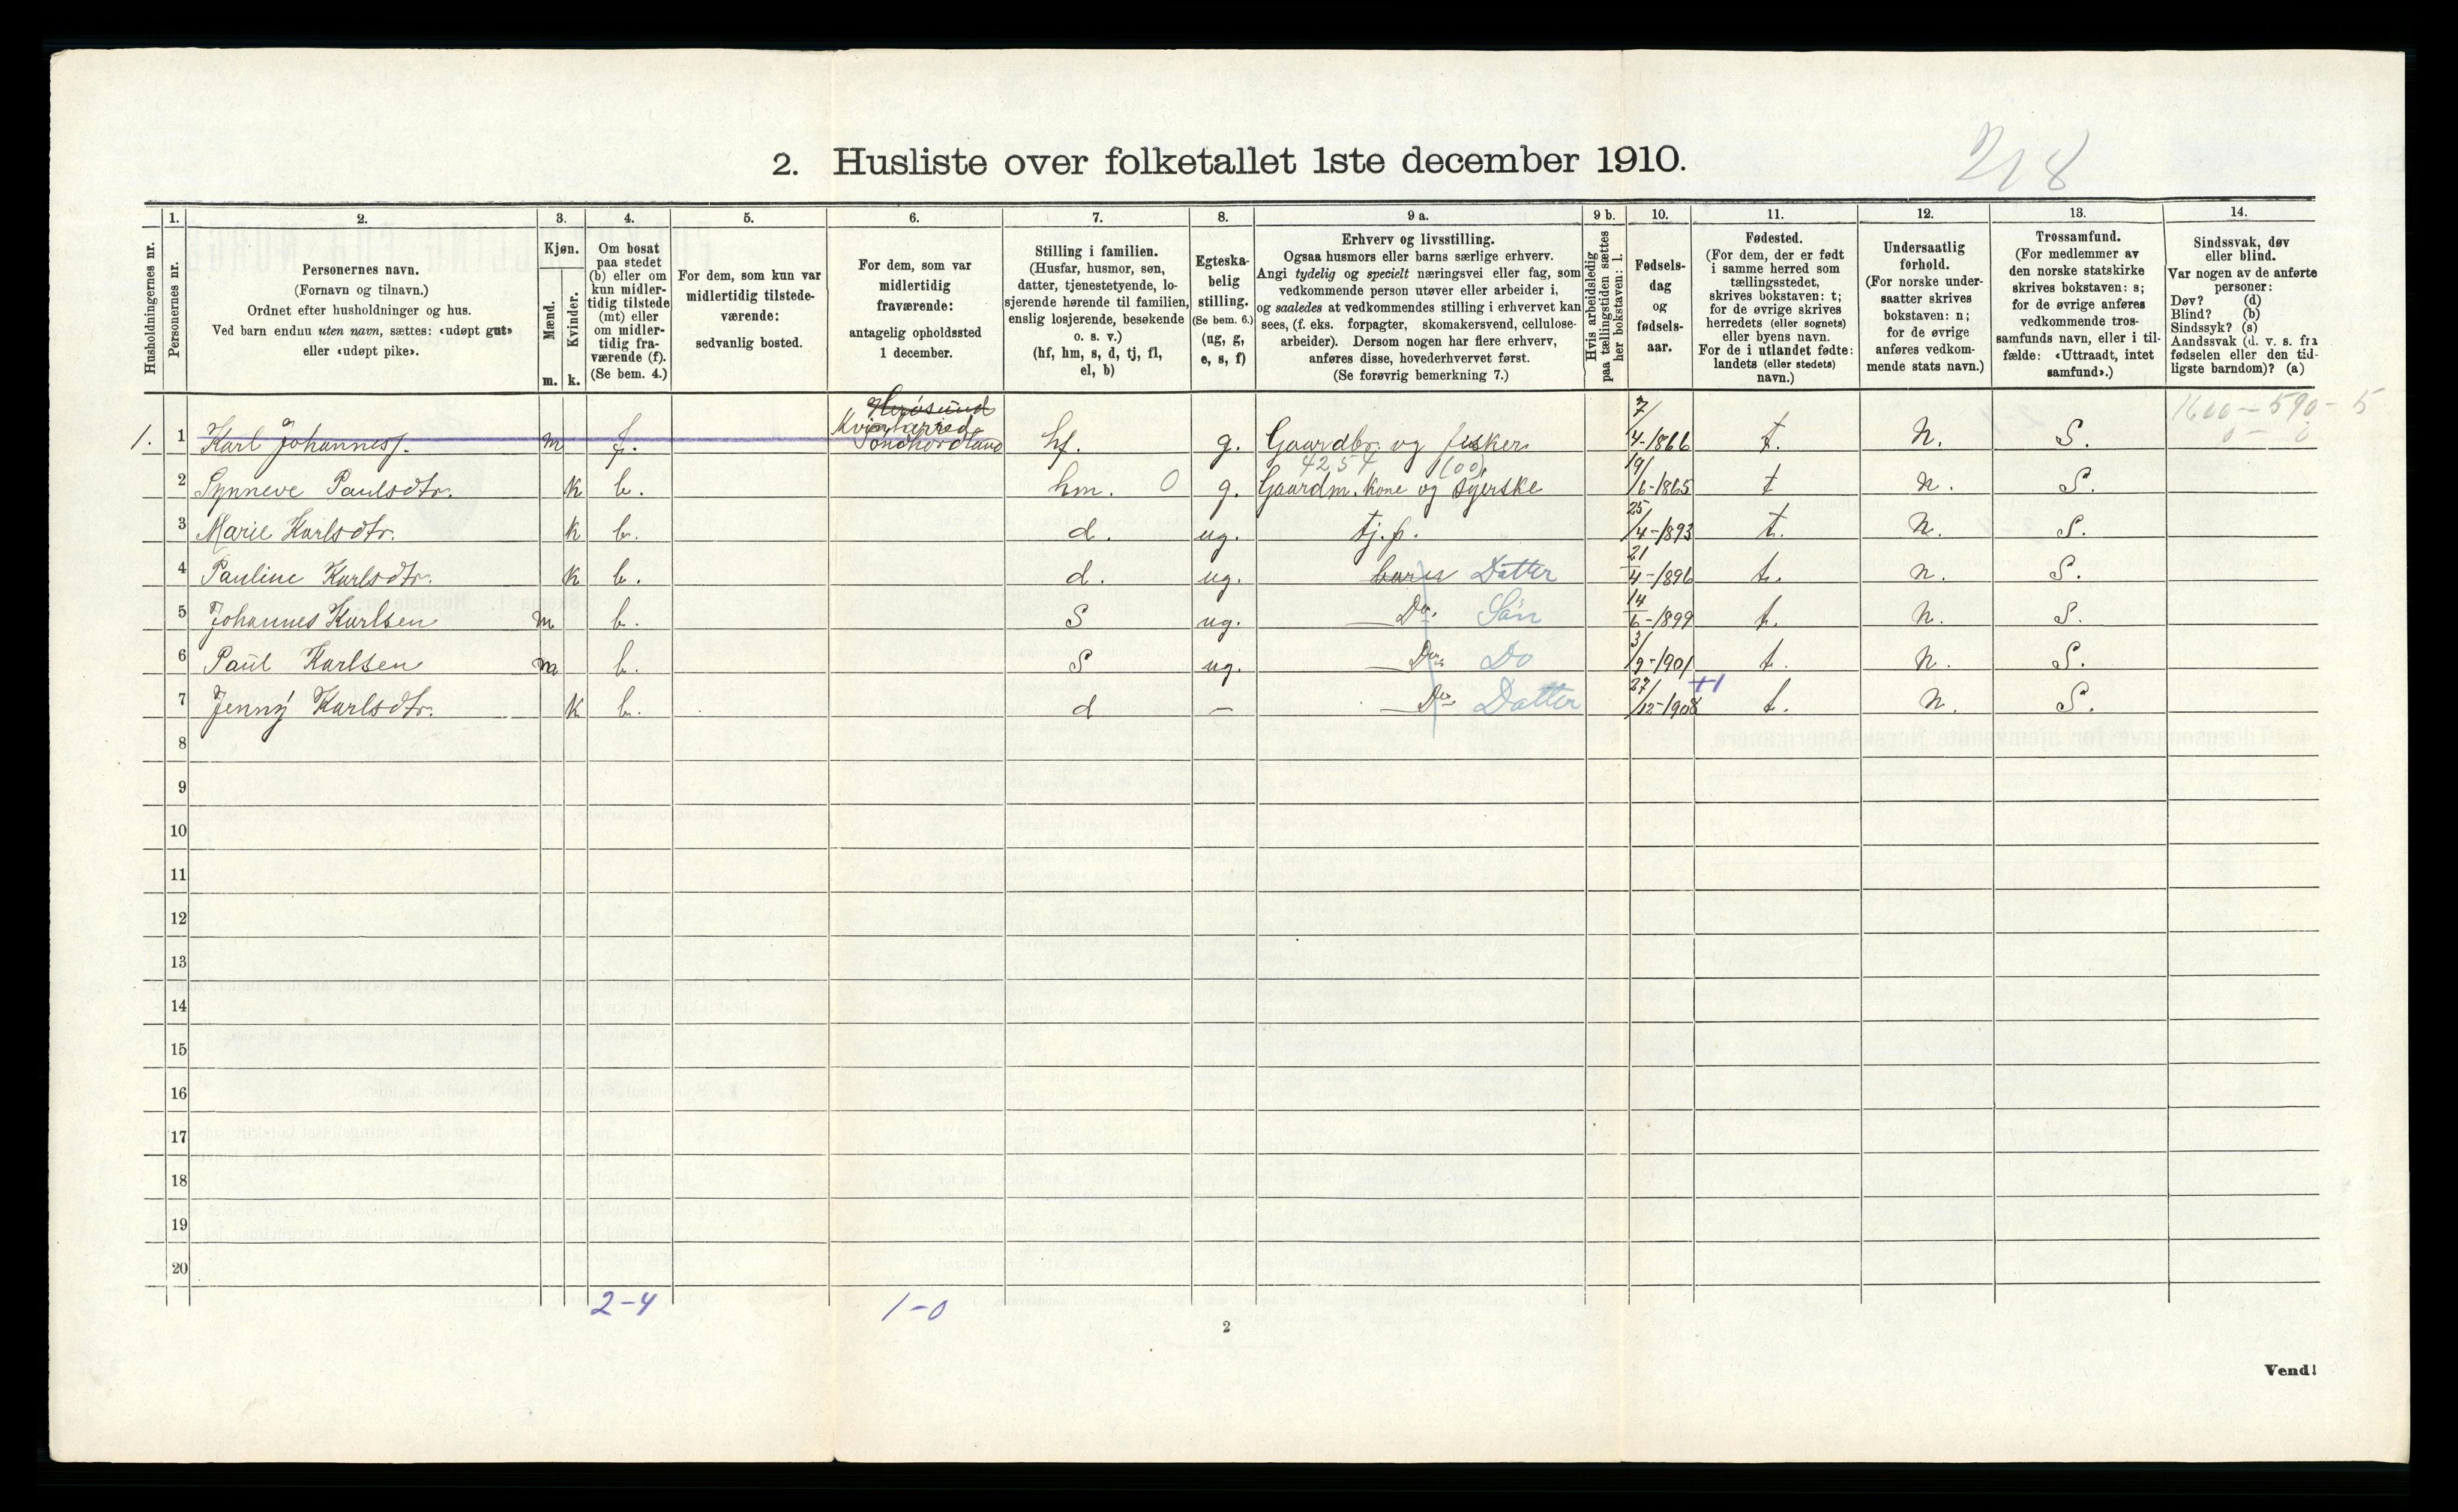 218
2. Husliste over folketallet 1ste december 1910.
Husholdningernes nr.
1. Personernes nr.
2. Personernes navn. (Fornavn og tilnavn.) Ordnet efter husholdninger og hus. Ved barn endnu uten navn, sættes: «udøpt gut» eller «udøpt pike».
3. Kjøn. Mænd. Kvinder. m. k.
4. Om bosat paa stedet (b) eller om kun midlertidig tilstede (mt) eller om midlertidig fraværende (f). (Se bem. 4.)
5. For dem, som kun var midlertidig tilstedeværende: sedvanlig bosted.
6. For dem, som var midlertidig fraværende: antagelig opholdssted 1 december.
7. Stilling i familien. (Husfar, husmor, søn, datter, tjenestetyende, losjerende hørende til familien, enslig losjerende, besøkende o. s. v.) (hf, hm, s, d, tj, fl, el, b)
8. Egteskabelig stilling. (Se bem. 6.) (ug, g, e, s, f)
9 a. Erhverv og livsstilling. Ogsaa husmors eller barns særlige erhverv. Angi tydelig og specielt næringsvei eller fag, som vedkommende person utøver eller arbeider i, og saaledes at vedkommendes stilling i erhvervet kan sees, (f. eks. forpagter, skomakersvend, cellulosearbeider). Dersom nogen har flere erhverv, anføres disse, hovederhvervet først. (Se forøvrig bemerkning 7.)
9 b. Hvis arbeidsledig paa tællingstiden sættes her bokstaven: l.
10. Fødselsdag og fødselsaar.
11. Fødested. (For dem, der er født i samme herred som tællingsstedet, skrives bokstaven: t; for de øvrige skrives herredets (eller sognets) eller byens navn. For de i utlandet fødte: landets (eller stedets) navn.)
12. Undersaatlig forhold. (For norske undersaatter skrives bokstaven: n; for de øvrige anføres vedkommende stats navn.)
13. Trossamfund. (For medlemmer av den norske statskirke skrives bokstaven: s; for de øvrige anføres vedkommende trossamfunds navn, eller i tilfælde: «Uttraadt, intet samfund».)
14. Sindssvak, døv eller blind. Var nogen av de anførte personer: Døv? (d) Blind? (b) Sindssyk? (s) Aandssvak (d. v. s. fra fødselen eller den tidligste barndom)? (a)
1600 - 590 - 5
0 - 0
1. 1 Karl Johannesf. m f. Herøsund Kvinherred Søndhordland hf. g. Gaardbr. og fisker 7/4-1866 t. n. S.
4254 (00)
2 Synneve Paulsdtr. k b. hm. 0 g. Gaardm. kone og syerske 19/6-1865 t n. S.
3 Marie Karlsdtr. k b. d. ug. tj.p. 25/4-1893 t. n. S.
4 Pauline Karlsdtr. k b. d. ug. barn Datter 21/4-1896 t. n. S.
5 Johannes Karlsen m b. S ug. Do. Søn 14/6-1899 t. n. S.
6 Paul Karlsen m b. S ug. Do. Do 3/9-1901 t. n. S.
7 Jenny Karlsdtr. k b. d - Do. Datter 27/12-1908 +1 t. n. S.
8
9
10
11
12
13
14
15
16
17
18
19
20
2-4 1-0
2
Vend!